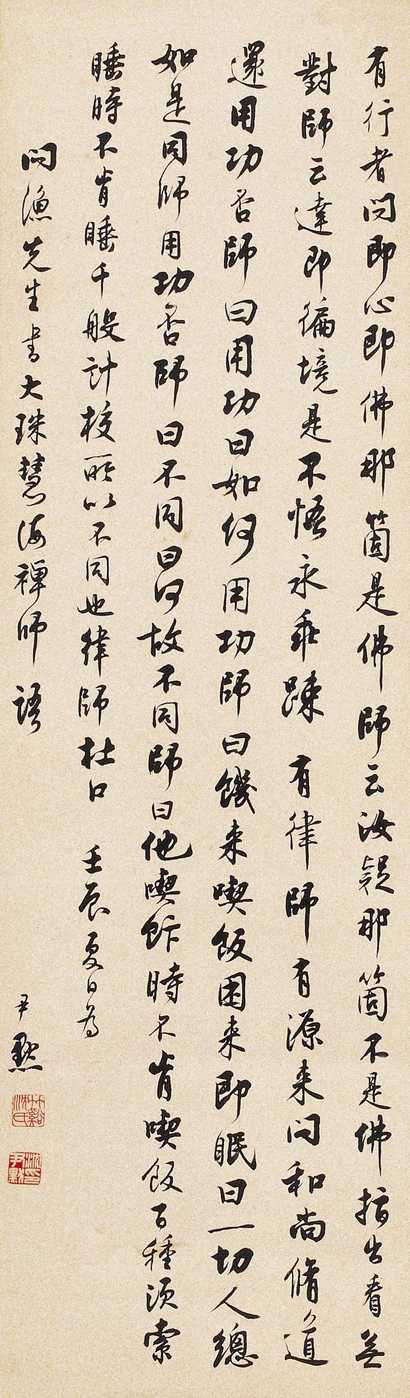 有行者問即心即佛那箇是佛師云汝疑那箇不是佛指出看無
對師云達即徧境是不悟永乖踈有律師有源来問和尚脩道
還用功否師曰用功曰如何用功師曰饑来喫飯困来即眠曰一切人總
如是同師用功否師曰不同曰何故不同師曰他喫飯時不肯喫飯百種須索
睡時不肯睡千般計校所以不同也律師杜口 壬辰夏日為
問漁先生書大珠慧海禅師語
尹默
竹谿沈氏
沈尹默印